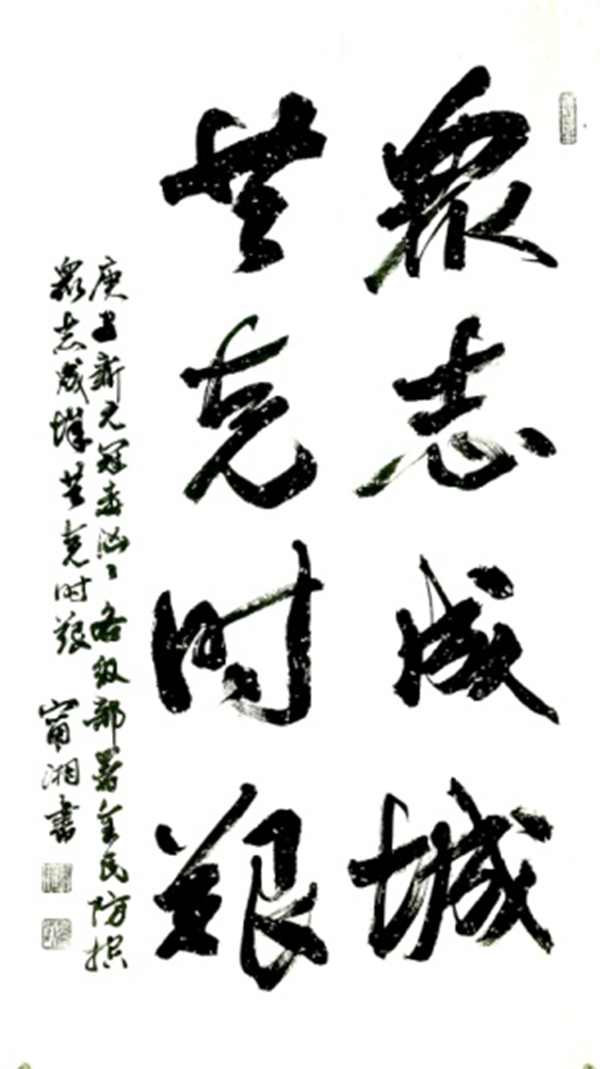 眾志成城
共克时艰
庚子新元冠毒汹汹各级部署全民防控
众志成城共克时艰 甯湘書